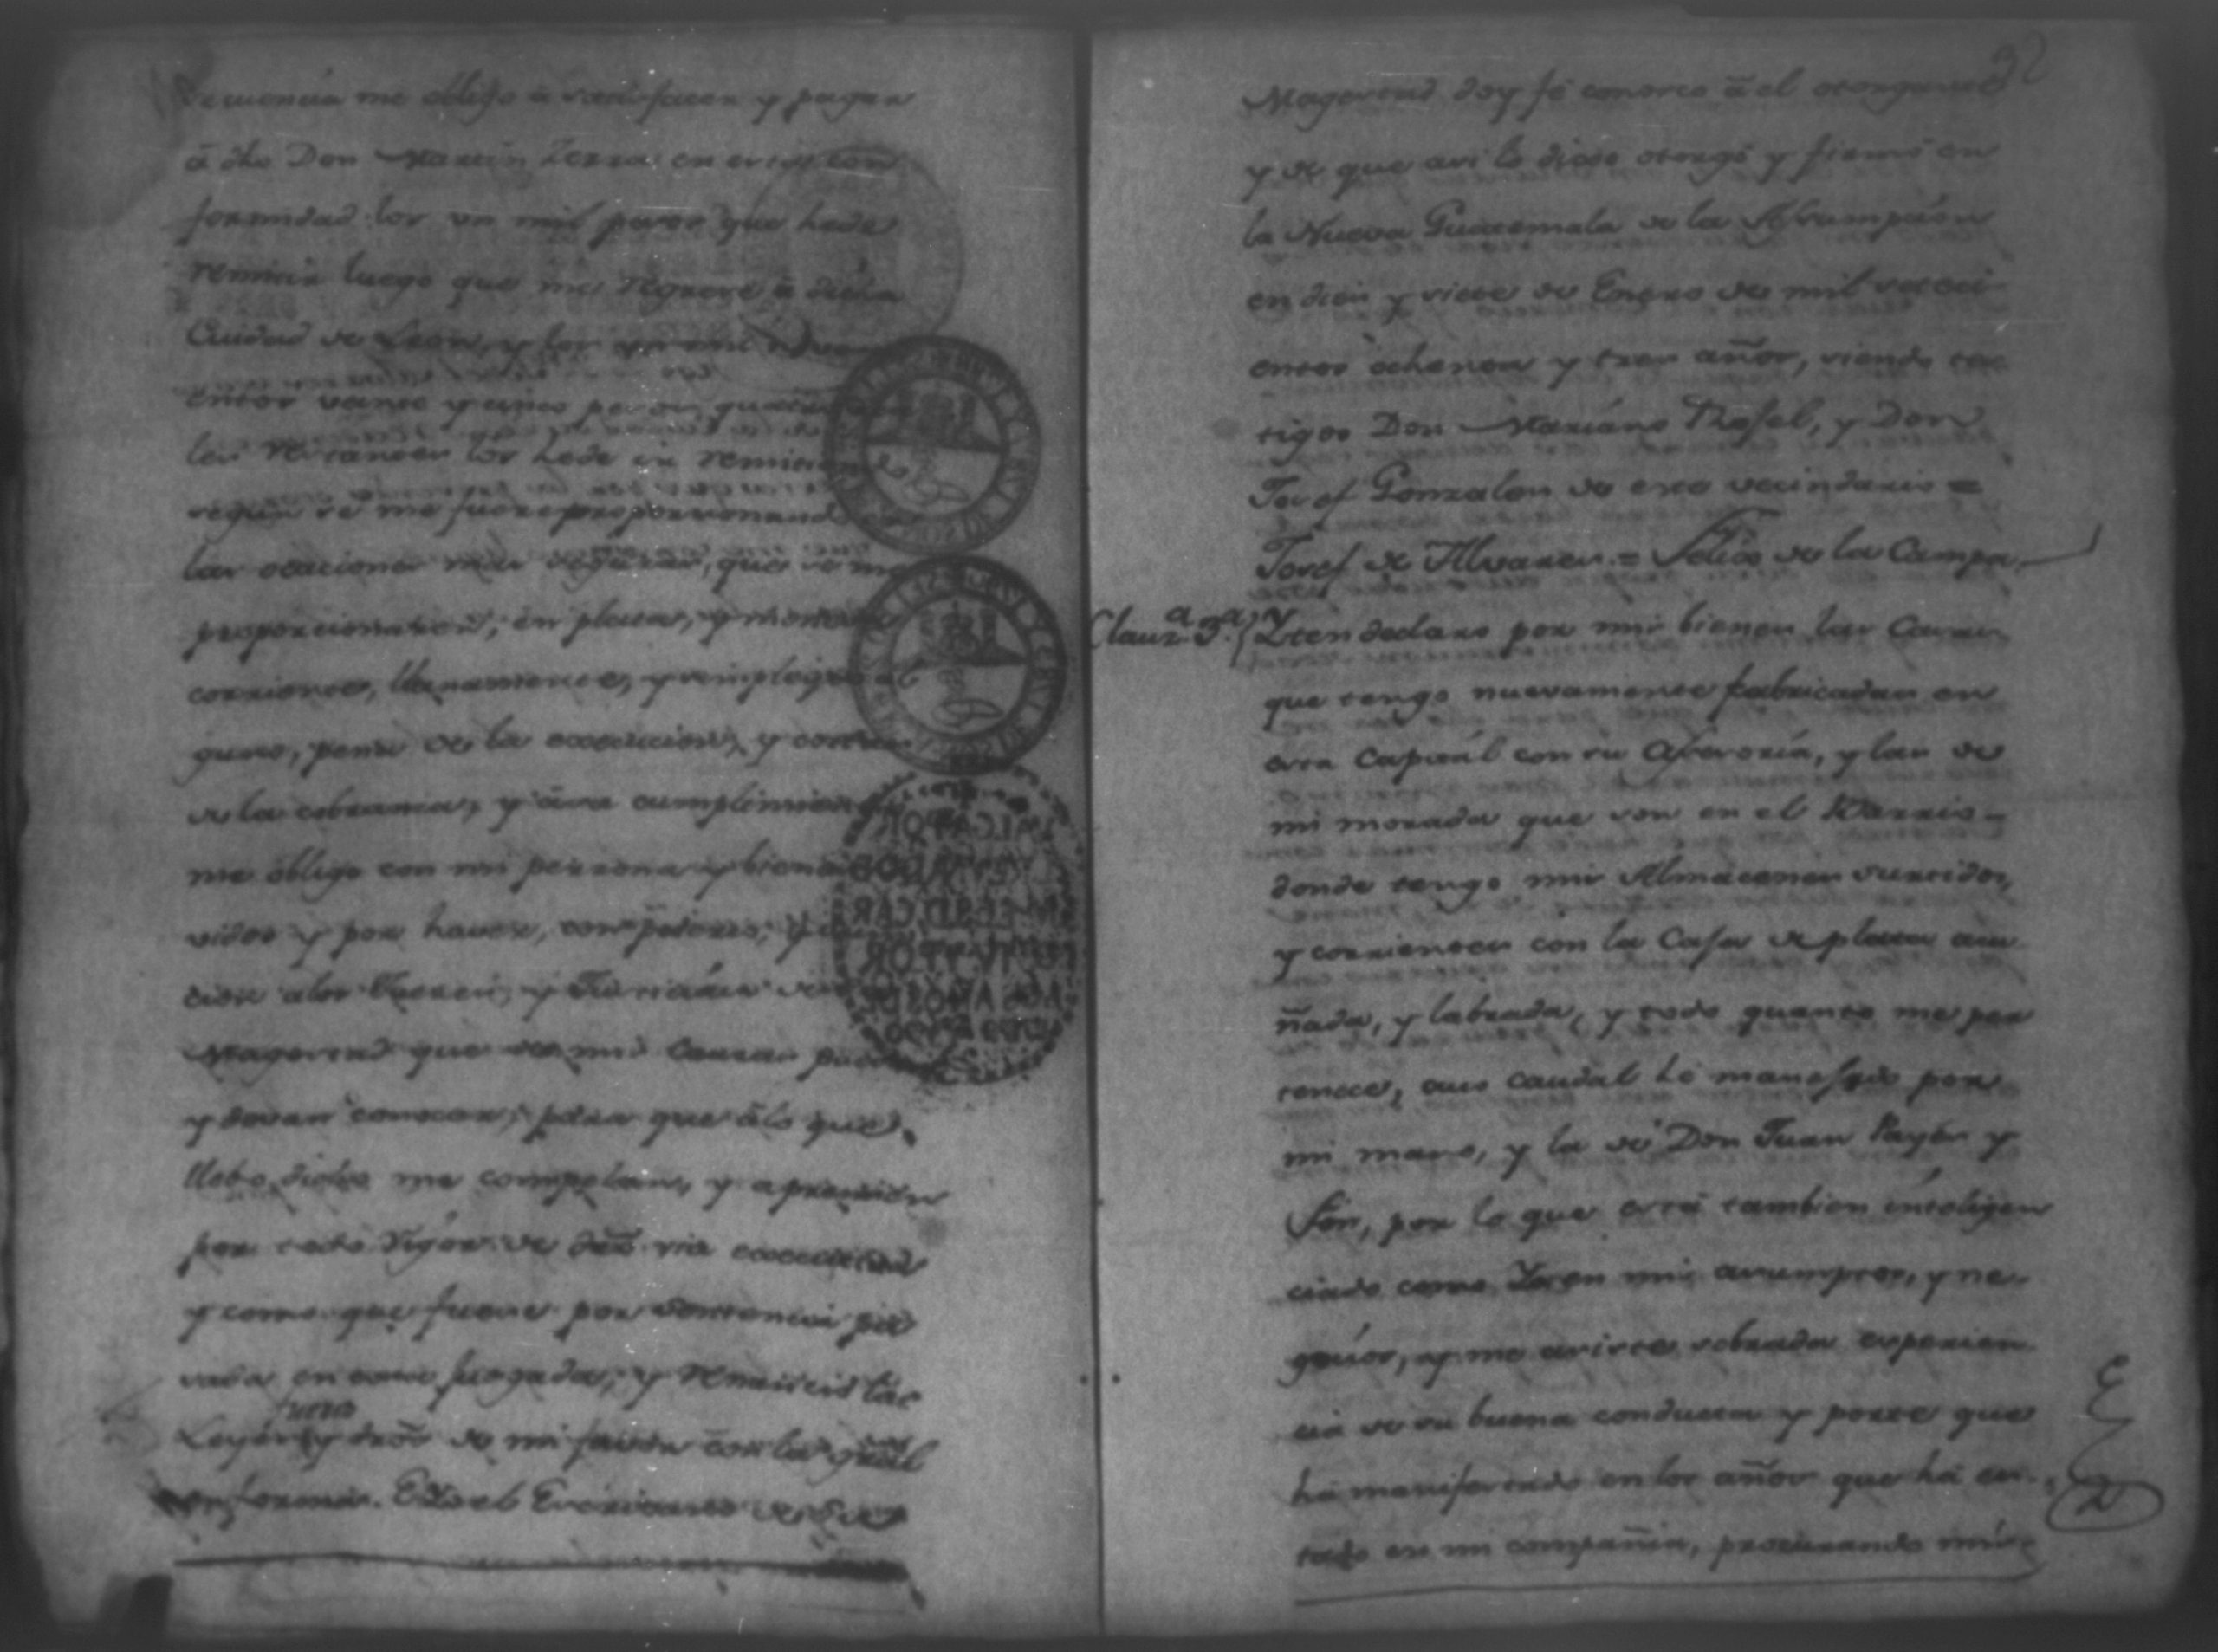 me obligo a satisfacer y pagar
á dho Don Martin en esta con
formidad los un mil pesos que hede
remitir luego que me regrese á dicha
Ciudad de Leon, y los
entos veinte y cinco pesos, quatro
les restantes los hede ir remitiendo
segun se me fuere proporcionando
las ocaciones mas seguras, que se me
proporcionaren, en plata, y moneda
corriente, llanamente, y sin pleyto al
guno, pena de la execucion, y costas
de la cobranza, y á su cumplimiento
me obligo con mi persona y bienes
vidos y por haver, con poderio, y
cion alos Jueces, y Justicias de su
Magestad que de mis Causas puedan
y devan conocer, para que álo que
llebo dicho me compelan, y apremien
por todo rigor de dro via executiva
y como que fuese por sentencia pa
sada en cosa juzgada, y renuncio las
fuero
Leyes y dros de mi favor con la gral
en forma. E Yo el Escrivano de Su
92
Magestad doy fé conosco á el otorgante
y de que asi lo dixo otorgó y firmó en
la Nueva Guatemala de la Assumpcion
en diez y siete de Enero de mil seteci
entos ochenta y tres años, siendo tes
tigos Don Mariano Rafel, y Don
Josef Gonzales de este vecindario =
Josef de Alvarez = de la Campa
Clauza 3.a Yten declaro por mis bienes las Casas
que tengo nuevamente fabricadas en
esta Capital con su Asesoría, y las de
mi morada que son en el Barrio
donde tengo mis Almacenes surtidos,
y corrientes con la Caja de plata acu
ñada, y labrada, y todo quanto me per
tenece, cuio caudal he manejado por
mi mano, y la de Don Juan Payés y
Fón, por lo que está tambien inteligen
ciado como Yo en mis asumptos, y ne
gocios, y me asiste sobrada esperien
cia de su buena conducta y porte que
há manifestado en los años que há es
tado en mi compañia, procurando mis